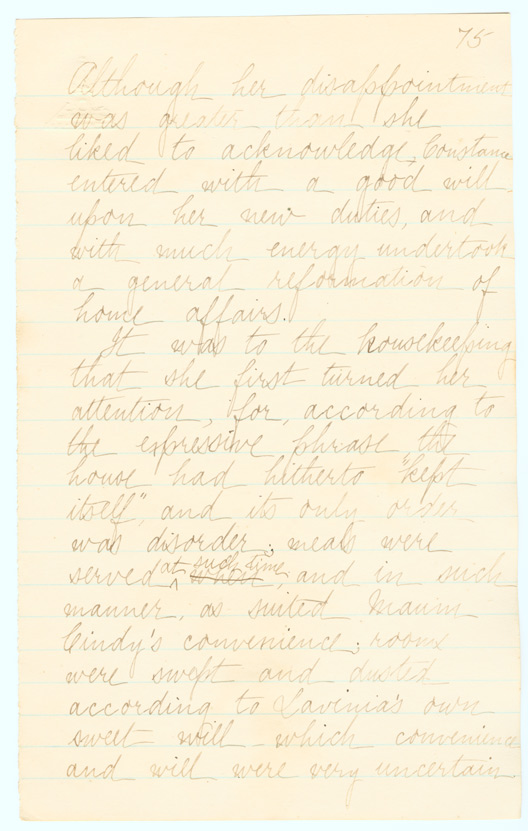 75
Although her disappointment
was greater than she
liked to acknowledge, Constance
entered with a good will
upon her new duties, and
with much energy undertook
a general reformation of
home affairs.
It was to the housekeeping
that she first turned her
attention, for, according to
the expressive phrase, the
house had hitherto "kept
itself", and its only order
was disorder; meals were
served at such time, and in such
manner, as suited Maum
Cindy's convenience; rooms
were swept and dusted
according to Lavinia's own
sweet will - which convenience
and will were very uncertain.